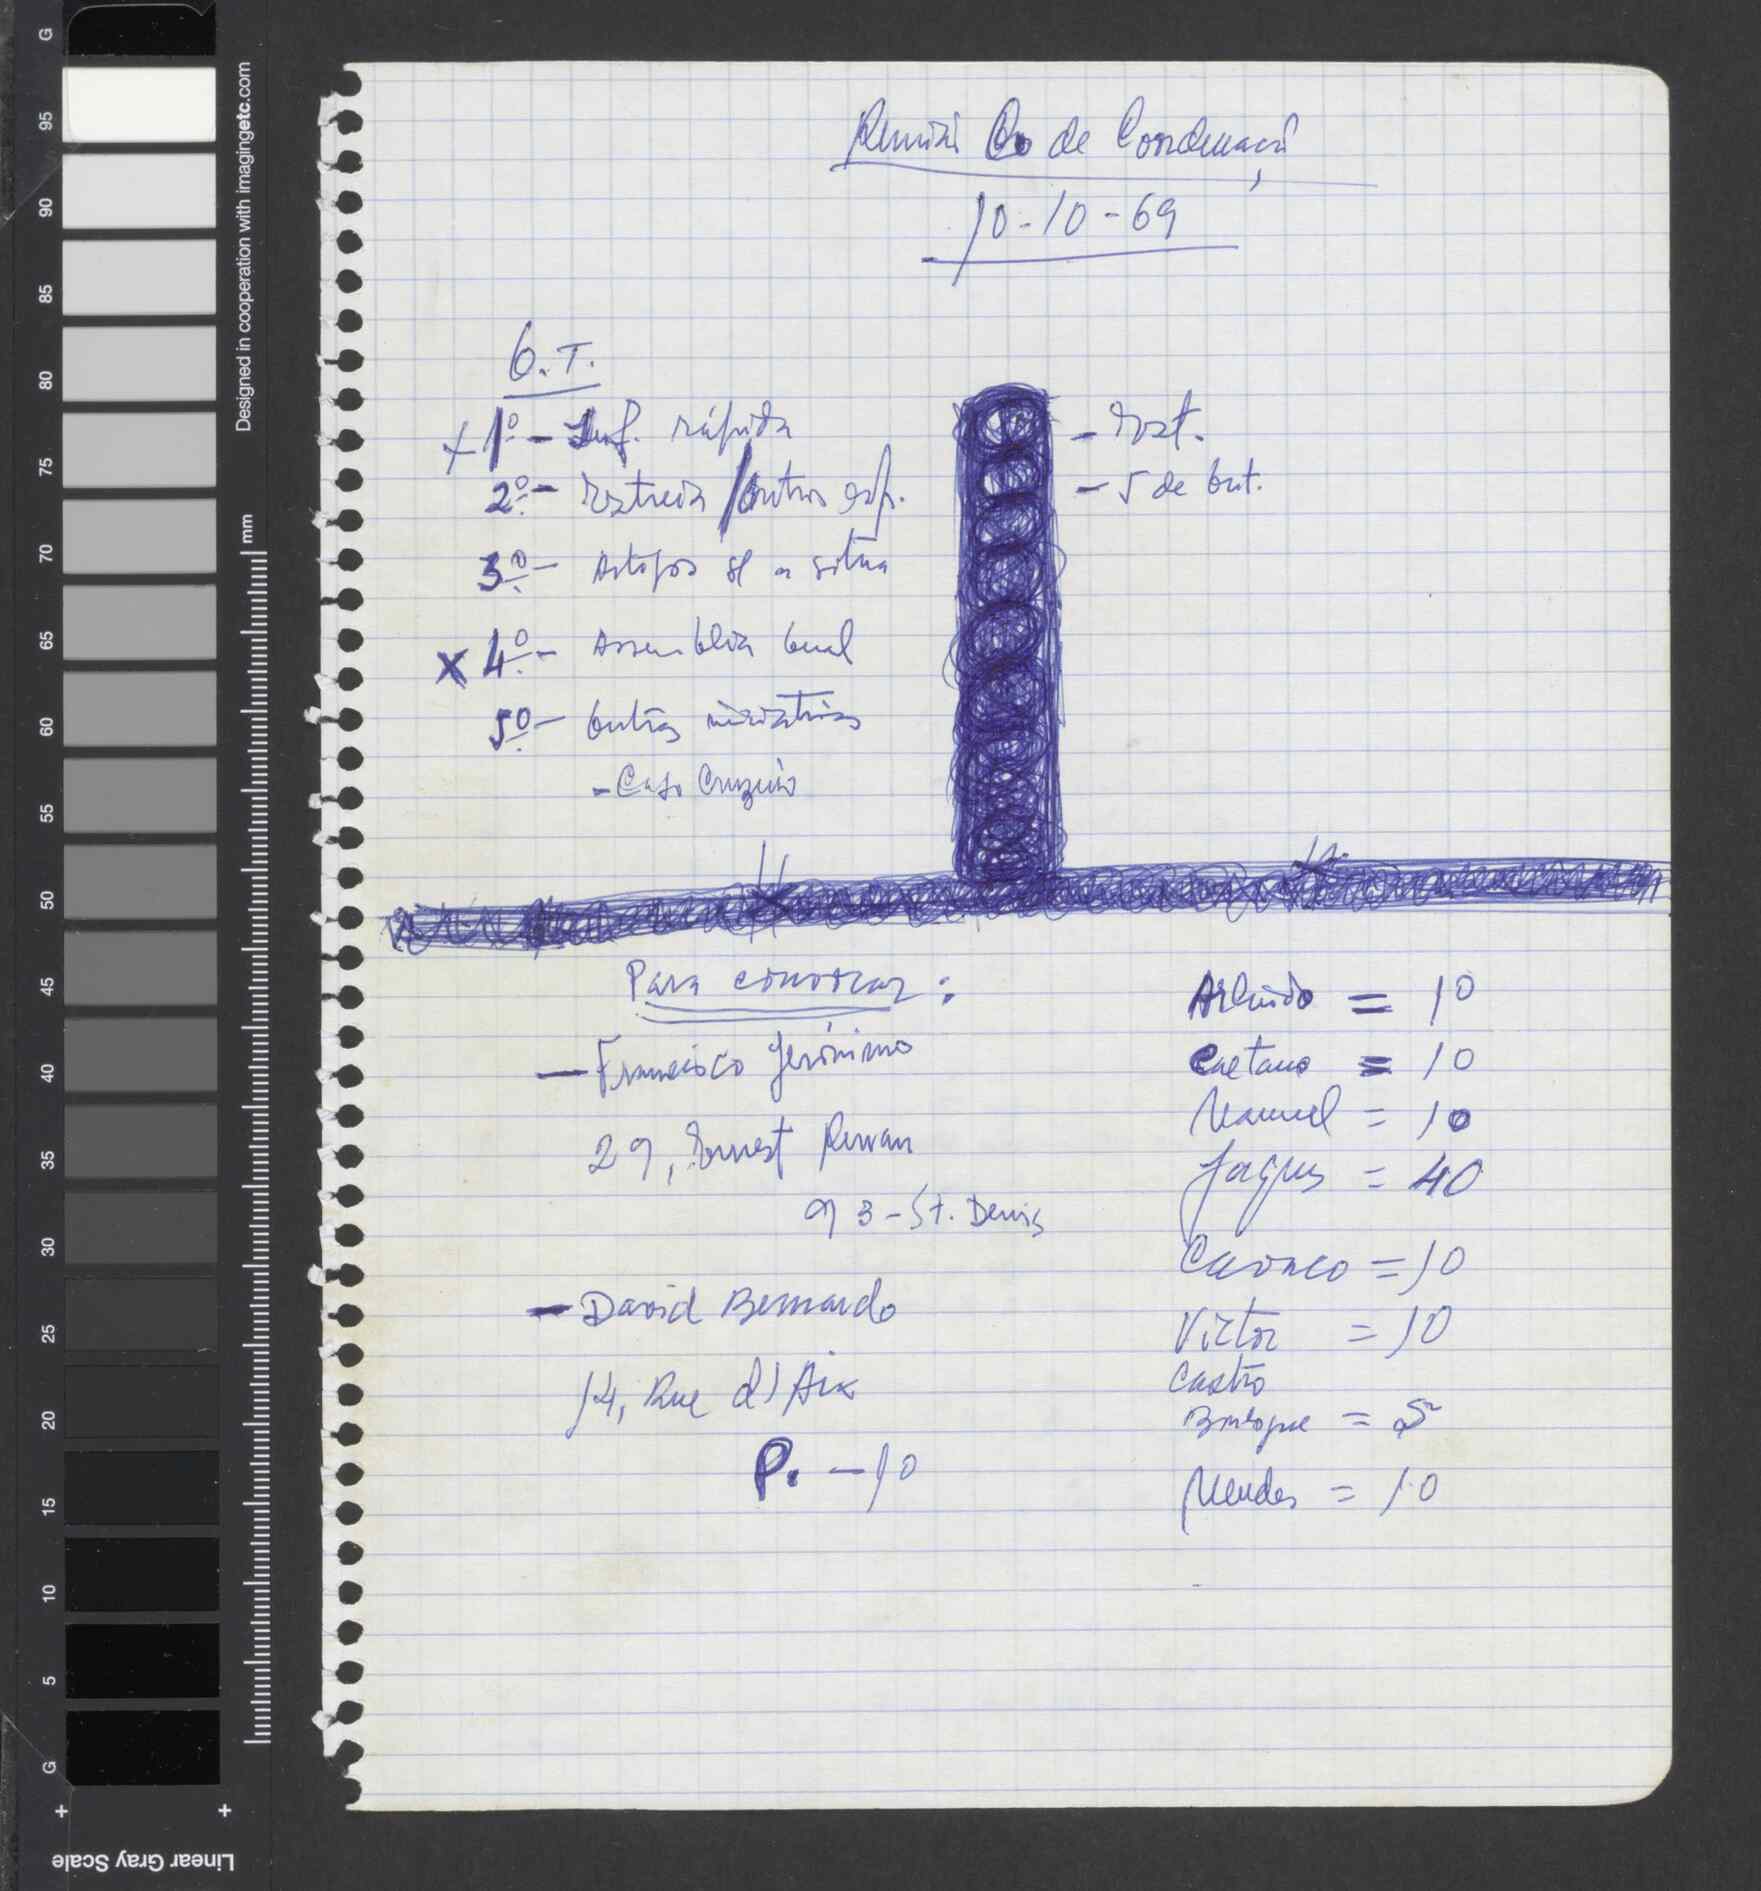 Reunião Co de Coordenação
10-10-69
O.T.
+ 1º - Inf. rápida
2º - / outros esp.
3º - Artigos s/ a situa
x 4º - Assembleia Geral
5º - Outras iniciativas
- Caso Cruzeiro
- 
- 5 de Out.
Para convocar :
- Francisco Jerónimo
29, Ernest Renan
93 - St. Denis
- David Bernardo
14, Rue d'Aix
P. - 10
Arlindo = 10
Caetano = 10
Manuel = 10
Jaques = 40
= 10
Victor = 10
Castro
= 5
Mendes = 10
Designed in cooperation with imagingetc.com
mm
G 95 90 85 80 75 70 65 60 55 50 45 40 35 30 25 20 15 10 5 G
Linear Gray Scale